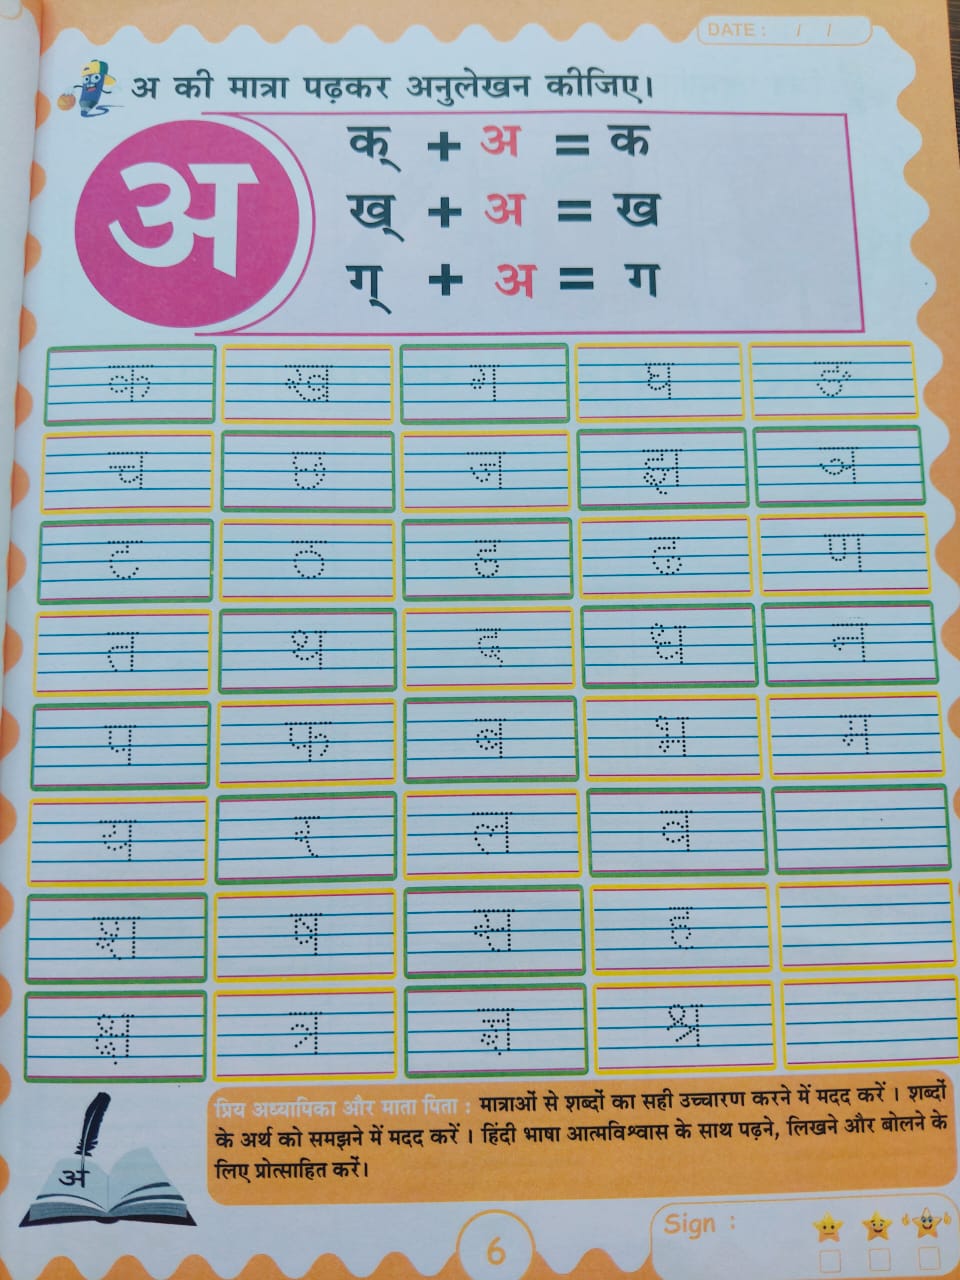 DATE : / /
अ की मात्रा पढ़कर अनुलेखन कीजिए।
अ
क् + अ = क
ख् + अ = ख
ग् + अ = ग
क ख ग घ ङ
च छ ज झ ञ
ट ठ ड ढ ण
त थ द ध न
प फ ब भ म
य र ल व
श ष स ह
क्ष त्र ज्ञ श्र
प्रिय अध्यापिका और माता पिता : मात्राओं से शब्दों का सही उच्चारण करने में मदद करें । शब्दों
के अर्थ को समझने में मदद करें । हिंदी भाषा आत्मविश्वास के साथ पढ़ने, लिखने और बोलने के
लिए प्रोत्साहित करें।
अ
6
Sign :